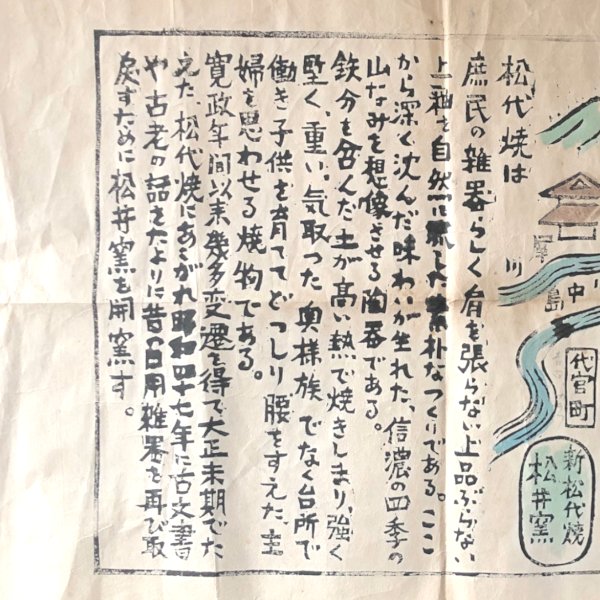 松代焼は
庶民の雑器らしく肩を張らない上品ぶらない
上釉を自然に流した素朴なつくりである。ここ
から深く沈んだ味わいが生れた、信濃の四季の
山なみを想像させる陶器である。
鉄分を含くんだ土が高い熱で焼きしまり、強く
堅く、重い。気取った奥様族でなく台所で
働き子供を育ててどっしり腰をすえた、主
婦を思わせる焼物である。
寛政年間以来幾多変遷を得て大正末期でた
えた、松代焼にあこがれ昭和四十七年に古文書
や古老の話をたよりに昔の日用雑器を再び取
戻すために松井窯を開窯す。
川
中
島
代官町
新松代焼
松井窯